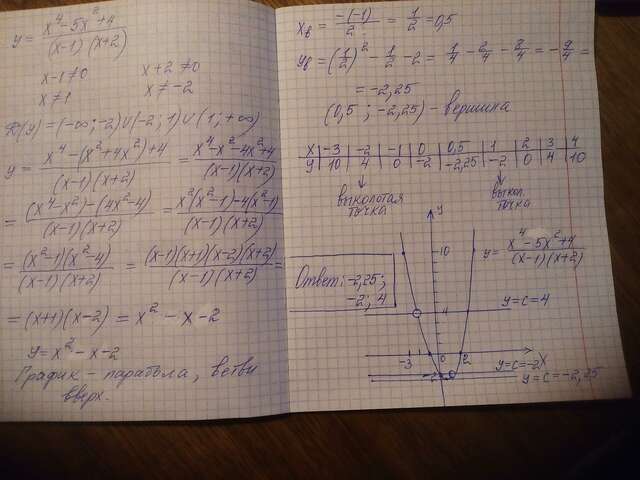 y = (x⁴-5x²+4)/((x-1)(x+2))
x-1≠0   x+2≠0
x≠1   x≠-2
D(y)=(-∞;-2)∪(-2;1)∪(1;+∞)
y = (x⁴-(x²+4x²)+4)/((x-1)(x+2)) = (x⁴-x²-4x²+4)/((x-1)(x+2))
= ((x⁴-x²)-(4x²-4))/((x-1)(x+2)) = (x²(x²-1)-4(x²-1))/((x-1)(x+2))
= ((x²-1)(x²-4))/((x-1)(x+2)) = ((x-1)(x+1)(x-2)(x+2))/((x-1)(x+2)) =
= (x+1)(x-2) = x²-x-2
y = x²-x-2
График - парабола, ветви
вверх.
xв = -(-1)/2 = 1/2 = 0,5
yв = (1/2)² - 1/2 - 2 = 1/4 - 2/4 - 8/4 = -9/4 =
= -2,25
(0,5 ; -2,25) - вершина
x | -3 | -2 | -1 | 0 | 0,5 | 1 | 2 | 3 | 4
y | 10 | 4 | 0 | -2 | -2,25 | -2 | 0 | 4 | 10
выколотая
точка
выкол.
точка
y
10
y = (x⁴-5x²+4)/((x-1)(x+2))
Ответ: -2,25;
-2; 4
y=c=4
4
-3 0 2
x
y=c=-2
-2
y=c=-2,25